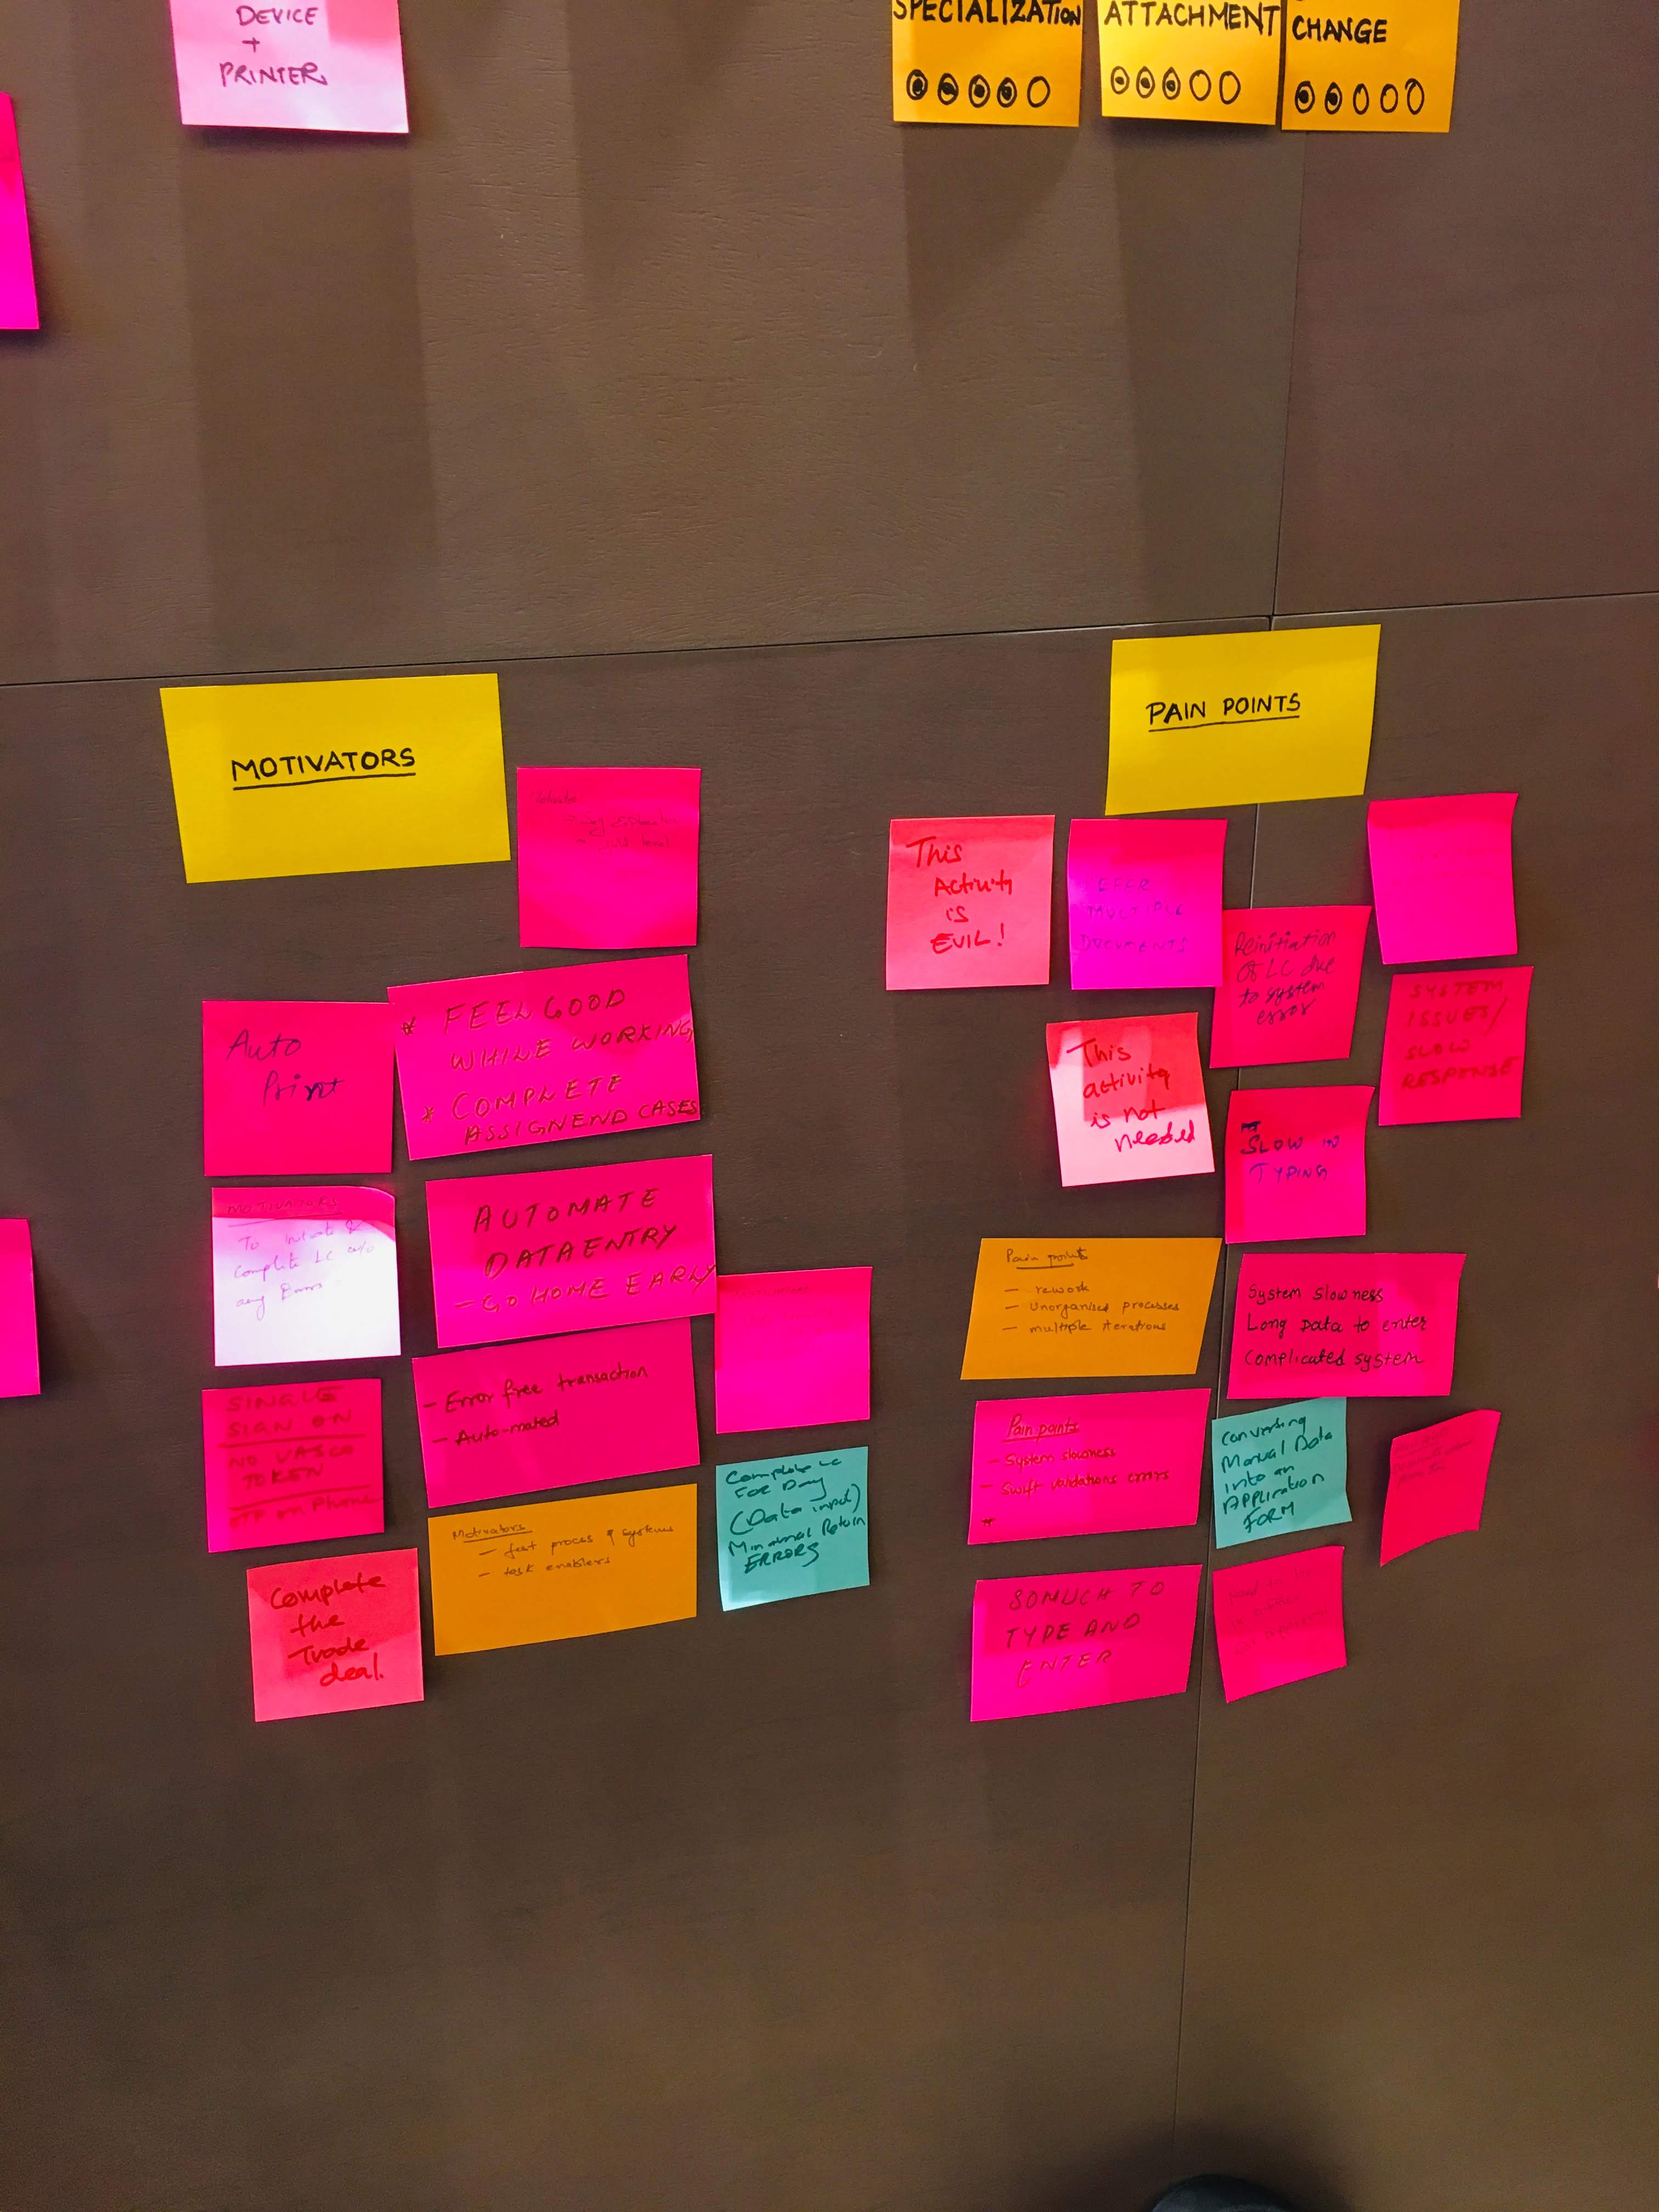 DEVICE
+
PRINTER
SPECIALIZATION
ATTACHMENT
CHANGE
MOTIVATORS
Auto
Print
* FEEL GOOD
WHILE WORKING
* COMPLETE
ASSIGNEND CASES
MOTIVATORS
To Initiate &
Complete LC w/o
any Errors
AUTOMATE
DATAENTRY
- GO HOME EARLY
SINGLE
SIGN ON
NO VASCO
TOKEN
OTP on Phone
- Error free transaction
- Auto-mated
Complete LC
FOR Day
(Data input)
Minimal Return
ERRORS
Motivators
- fast process & systems
- task enablers
Complete
the
Trade
deal.
PAIN POINTS
This
Activity
is
EVIL!
MULTIPLE
DOCUMENTS
Reinitiation
Of LC due
to system
error
SYSTEM
ISSUES/
SLOW
RESPONSE
This
activity
is not
needed
SLOW IN
TYPING
Pain points
- rework
- Unorganised processes
- multiple iterations
System slowness
Long Data to enter
Complicated system
Pain points
- System slowness
- Swift validations errors
*
Converting
Manual Data
into an
APPlication
FORM
SOMUCH TO
TYPE AND
ENTER